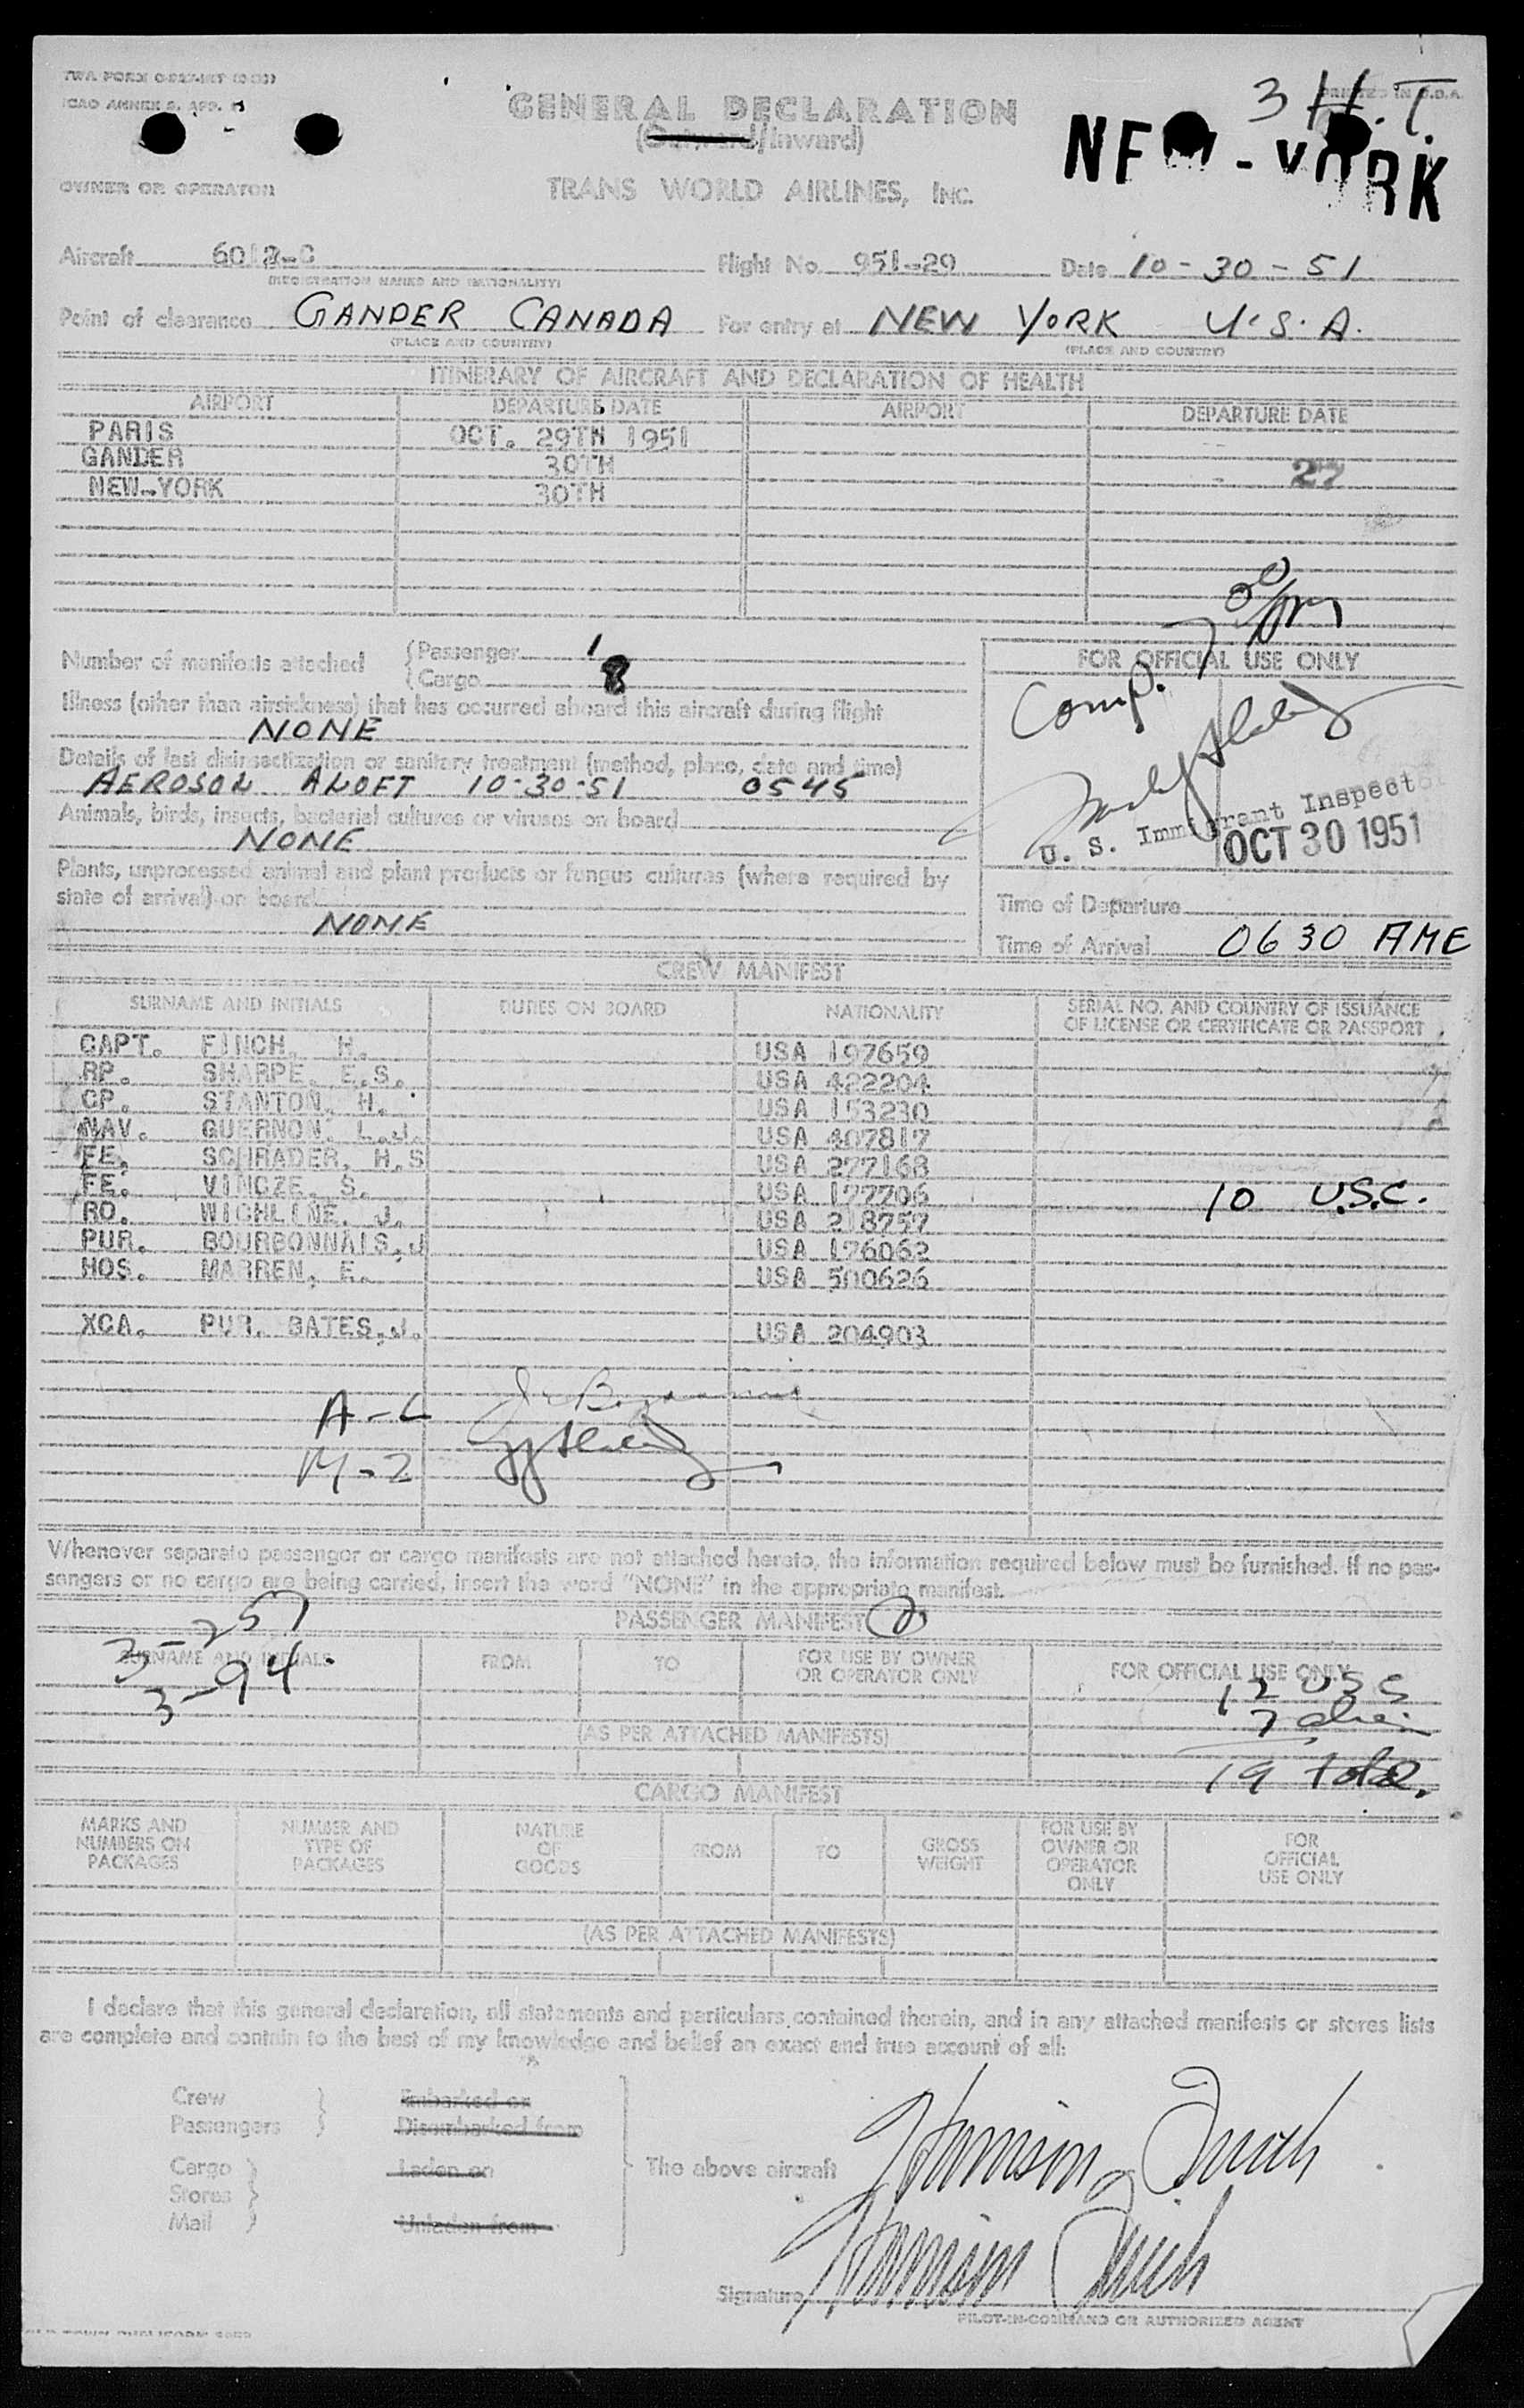 GENERAL DECLARATION
(Outward/Inward)
3 H.T.
PRINTED IN U.S.A.
NEW-YORK
OWNER OR OPERATOR
TRANS WORLD AIRLINES, INC.
Aircraft Flight No. 951-29 Date 10-30-51
(REGISTRATION MARKS AND NATIONALITY)
Point of clearance GANDER CANADA For entry at NEW YORK U.S.A.
(PLACE AND COUNTRY) (PLACE AND COUNTRY)
ITINERARY OF AIRCRAFT AND DECLARATION OF HEALTH
AIRPORT DEPARTURE DATE AIRPORT DEPARTURE DATE
PARIS OCT. 29TH 1951
GANDER 30TH 27
NEW-YORK 30TH
Number of manifests attached
Passenger 1
Cargo 8
FOR OFFICIAL USE ONLY
Comp.
Illness (other than airsickness) that has occurred aboard this aircraft during flight
NONE
Details of last disinsectization or sanitary treatment (method, place, date and time)
AEROSOL ALOFT 10-30-51 0545
Animals, birds, insects, bacterial cultures or viruses on board
NONE
U. S. Immigrant Inspector
OCT 30 1951
Plants, unprocessed animal and plant products or fungus cultures (where required by
state of arrival) on board
NONE
Time of Departure
Time of Arrival 0630 AME
CREW MANIFEST
SURNAME AND INITIALS DUTIES ON BOARD NATIONALITY SERIAL NO. AND COUNTRY OF ISSUANCE
OF LICENSE OR CERTIFICATE OR PASSPORT
CAPT. FINCH, H. USA 197659
RP. SHARPE, E.S. USA 422204
CP. STANTON, H. USA 153230
NAV. GUERNON, L.J. USA 407817
FE. SCHRADER, H.S USA 277168
FE. VINCZE, S. USA 177206 10 U.S.C.
RO. WICHLINE, J. USA 218757
PUR. BOURBONNAIS,J USA 176062
HOS. MARREN, E. USA 500626
XCA. PUR. BATES,J. USA 204903
A-L
M-2
Whenever separate passenger or cargo manifests are not attached hereto, the information required below must be furnished. If no pas-
sengers or no cargo are being carried, insert the word "NONE" in the appropriate manifest.
PASSENGER MANIFEST
3-257
SURNAME AND INITIALS FROM TO FOR USE BY OWNER
OR OPERATOR ONLY FOR OFFICIAL USE ONLY
3-94.
12 USC
7 alien
(AS PER ATTACHED MANIFESTS)
19 total.
CARGO MANIFEST
MARKS AND
NUMBERS ON
PACKAGES
NUMBER AND
TYPE OF
PACKAGES
NATURE
OF
GOODS
FROM
TO
GROSS
WEIGHT
FOR USE BY
OWNER OR
OPERATOR
ONLY
FOR
OFFICIAL
USE ONLY
(AS PER ATTACHED MANIFESTS)
I declare that this general declaration, all statements and particulars contained therein, and in any attached manifests or stores lists
are complete and contain to the best of my knowledge and belief an exact and true account of all:
Crew Embarked on
Passengers Disembarked from
Cargo Laden on
Stores
Mail Unladen from
The above aircraft Harrison Finch
Signature Harrison Finch
PILOT-IN-COMMAND OR AUTHORIZED AGENT